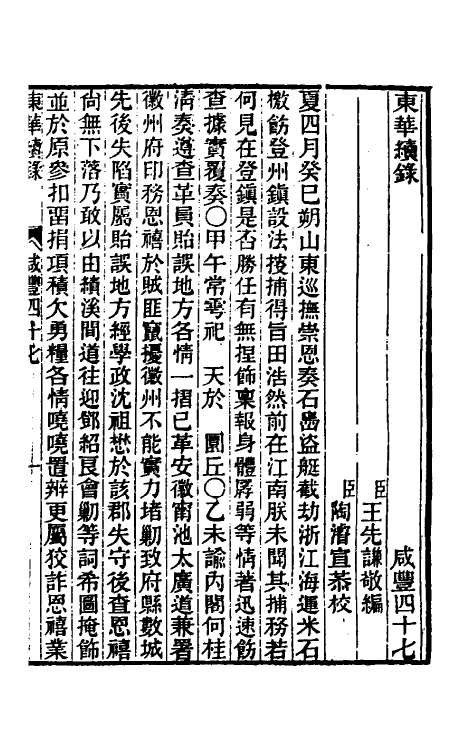 東華續錄　咸豐四十七
臣王先謙敬編
臣陶濬宣恭校
夏四月癸巳朔山東巡撫崇恩奏石島盜艇截劫浙江海運米石
檄飭登州鎮設法捜捕得旨田浩然前在江南朕未聞其捕務若
何見在登鎮是否勝任有無捏飾稟報身體孱弱等情著迅速飭
查據實覆奏○甲午常雩祀　天於　圜丘○乙未諭內閣何桂
清奏遵查革員貽誤地方各情一摺已革安徽甯池太廣道兼署
徽州府印務恩禧於賊匪竄擾徽州不能實力堵勦致府縣數城
先後失陷實屬貽誤地方經學政沈祖懋於該郡失守後查恩禧
尙無下落乃敢以由績溪間道往迎鄧紹良會勦等詞希圖掩飾
並於原參扣畱捐項積欠勇糧各情嘵嘵置辨更屬狡詐恩禧業
東華續錄　咸豐四十七　一